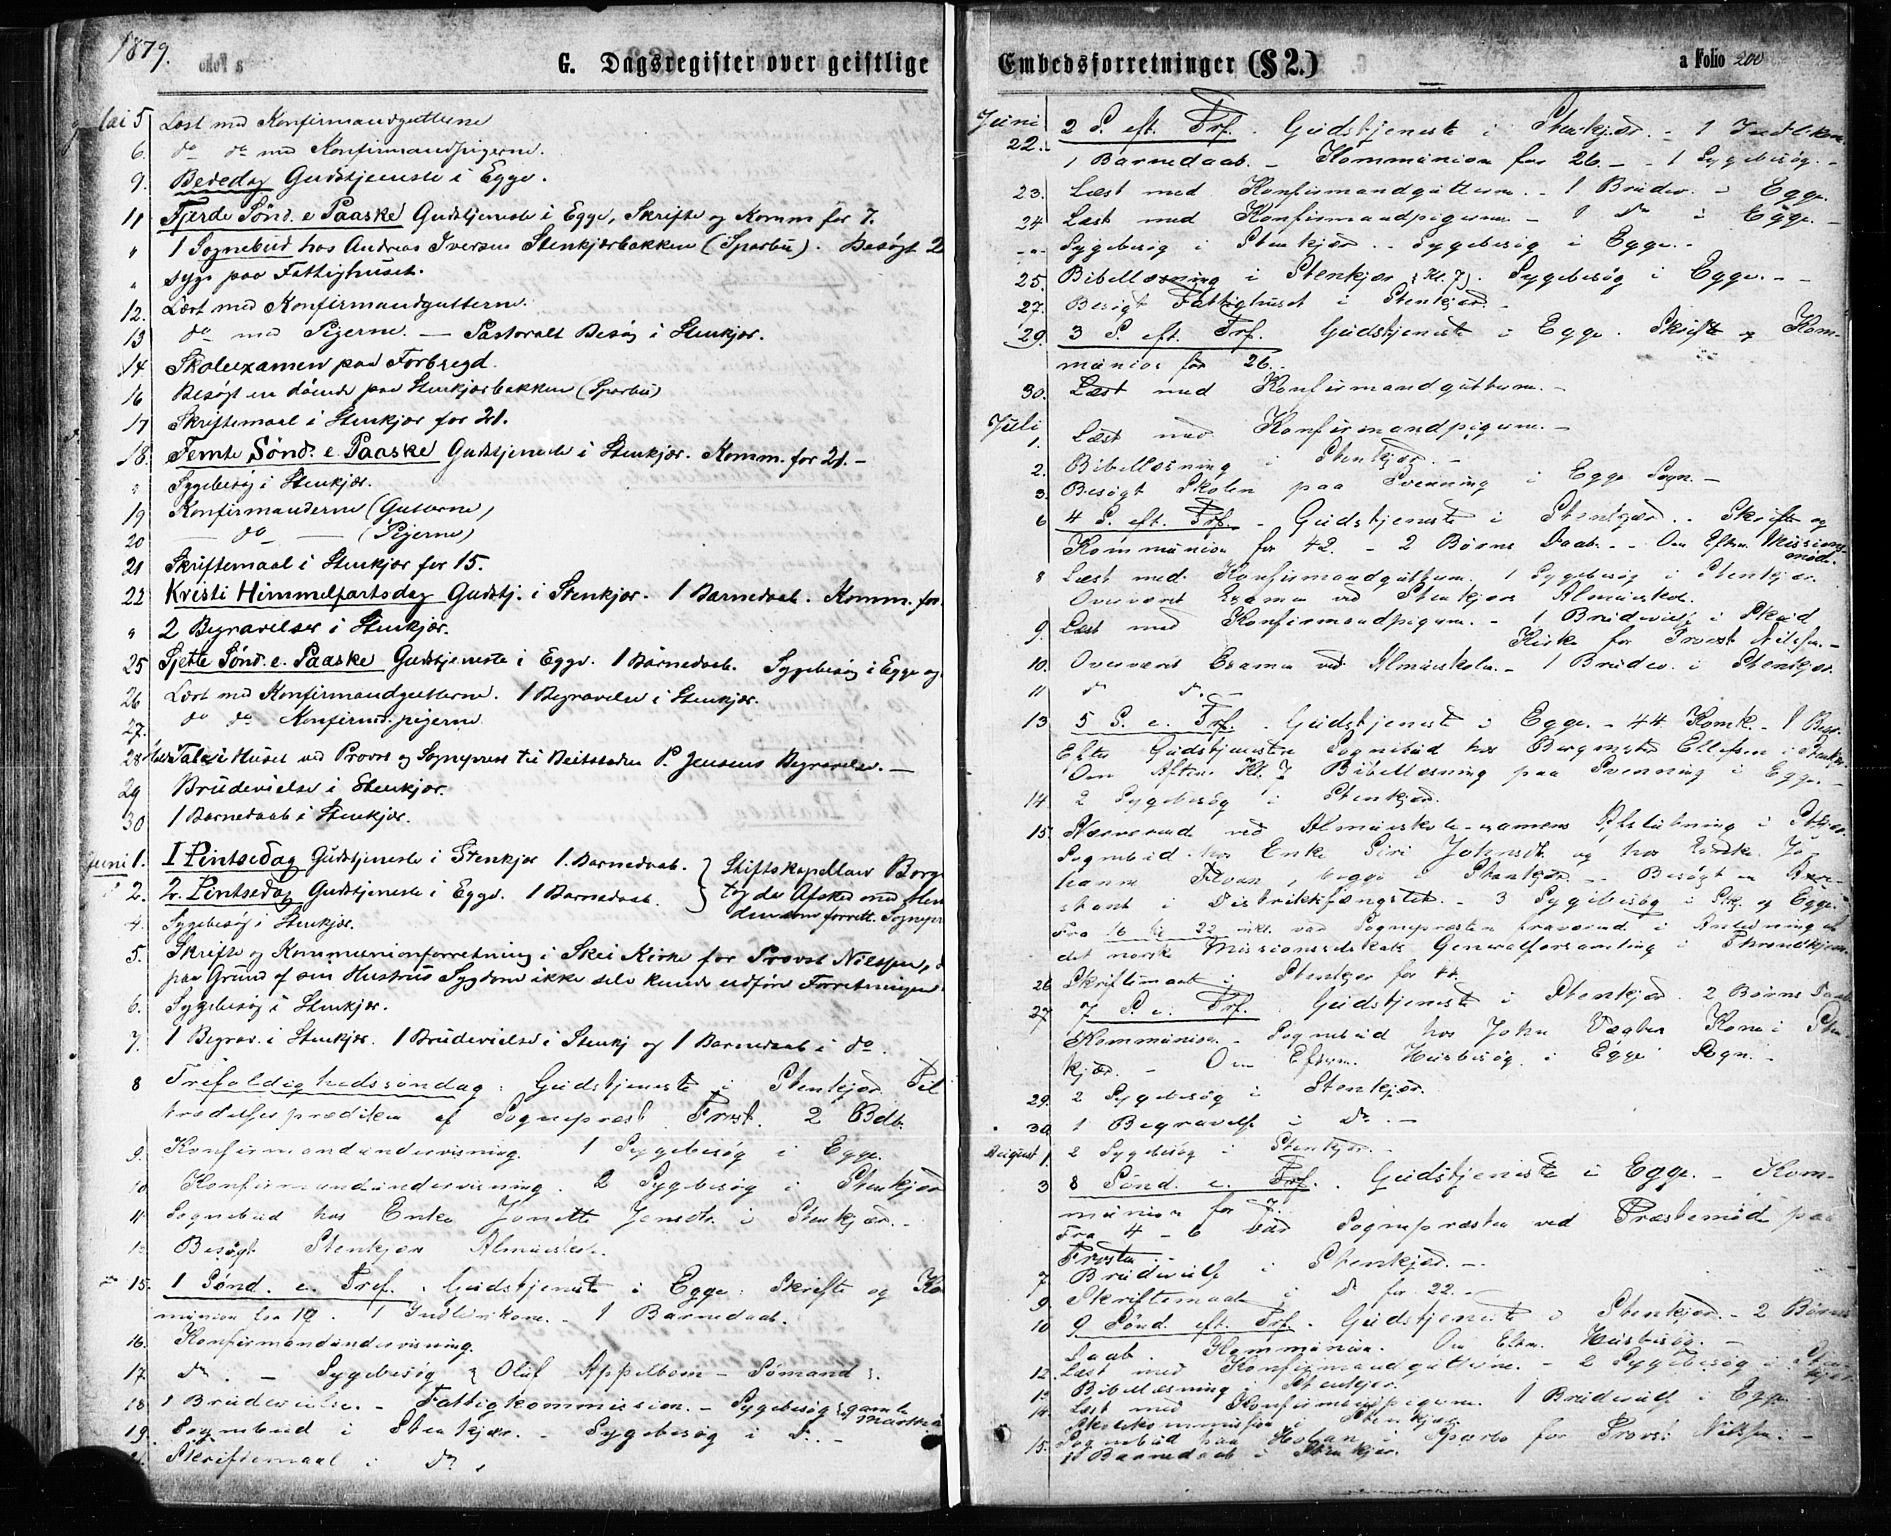 1879.
G. Dagsregister over geistlige
Mai 5 Læst med Konfirmandgutterne
6. do do med Konfirmandpigerne.
9. Bededag Gudstjeneste i Egge.
11 Fjerde Sønd. e Paaske Gudstjeneste i Egge, Skrifte og Komm for 7.
" 1 Sognebud hos Andreas Iversen Stenkjærbakken (Sparbu). Besøgt 2
" syge paa Fattighuset.
12. Læst med Konfirmandgutterne.
13 do med Pigerne. — Pastoralt Besøg i Stenkjær.
14 Skoleexamen paa Forbregd.
16 Besøgt en døende paa Stenkjærbakken (Sparbu)
17 Skriftemaal i Stenkjær for 21.
18. Femte Sønd. e. Paaske Gudstjeneste i Stenkjær. Komm. for 21. –
" Sygebesøg i Stenkjær.
19 Konfirmanderne (Gutterne)
20 — do — (Pigerne)
21 Skriftemaal i Stenkjær for 15.
22 Kristi Himmelfartsdag Gudstj. i Stenkjær. 1 Barnedaab. Komm. for
" 2 Begravelser i Stenkjær.
25 Sjette Sønd. e. Paaske Gudstjeneste i Egge. 1 Barnedaab. Sygebesøg i Egge og
26 Læst med Konfirmandgutterne. 1 Begravelse i Stenkjær.
27. do do Konfirmd.pigerne
28 Tale i Huset ved Provst og Sognepræst til Beitstaden P. Jensens Begravelse. —
29 Brudevielse i Stenkjær.
30 1 Barnedaab i Stenkjær.
Juni 1. 1 Pintsedag Gudstjeneste i Stenkjær 1. Barnedaab. } Stiftskapellan Borg
2. 2. Pintsedag Gudstjeneste i Egge. 1 Barnedaab. } tog da Afsked med Men
4. Sygebesøg i Stenkjær. den som forrett. Sognepr
5. Skrifte og Kommunionforretning i Skei Kirke for Provst Nilssen,
paa Grund af sin Hustrus Sygdom ikke selv kunde udføre Forretningen
6. Sygebesøg i Stenkjær.
7. 1 Begrav. i Stenkjær. 1 Brudevielse i Stenkj og 1 Barnedaab i do.
8 Trefoldighedssøndag: Gudstjeneste i Stenkjær Til
trædelsesprædiken af Sognepræst Frost. 2 Bdb.
9. Konfirmandundervisning. 1 Sygebesøg i Egge.
10 Konfirmandundervisning. 2 Sygebesøg i Stenkjær
11 Sognebud hos Enke Jonette Jensdt. i Stenkjær.
Besøgt Stenkjær Almueskole.
15. 1 Sønd. e. Tref. Gudstjeneste i Egge: Skrifte og Ko
munion for 19. 1 Indl. i Kone. – 1 Barnedaab.
16. Konfirmandundervisning.
17. do. – Sygebesøg { Oluf Appelbom – Sømand }.
18. 1 Brudevielse. – Fattigkommission. – Sygebesøg { gamle
19. Sognebud i Stenkjær. – Sygebesøg i do. –
21. Skriftemaal i do.
Embedsforretninger (§ 2.)
a Folio 200
Juni
22. 2 S. eft. Trf. Gudstjeneste i Stenkjær. – 1 Indl. Kone
1 Barnedaab. – Kommunion for 26. – – 1 Sygebesøg. –
23. Læst med Konfirmandgutterne. – 1 Brudev. i Egge.
24 Læst med Konfirmandpigerne – 1 do i Egge. –
– " – Sygebesøg i Stenkjær. – Sygebesøg i Egge. –
25. Bibellæsning i Stenkjær { Kl. 7 }. Sygebesøg i Egge. – –
27. Besøgt Fattighuset i Stenkjær.
29. 3 S. eft. Trf. Gudstjeneste i Egge. Skrifte og Kom-
munion for 26.
30. Læst med Konfirmandgutterne. –
Juli
1. Læst med Konfirmandpigerne. –
2. Bibellæsning i Stenkjær. –
3. Besøgt Skolen paa Svenning i Egge Sogn. –
6 4 S. eft. Trf. – Gudstjeneste i Stenkjær. . Skrifte og
Kommunion for 42. – 2 Børns Daab. – Om Eftm. Missions-
mød.
8 Læst med Konfirmandgutterne. 1 Sygebesøg i Stenkjær.
Overværet Examen ved Stenkjær Almueskole.
9. Læst med Konfirmandpigerne. – 1 Brudeviels. i Skeid
Kirke for Provst Nilssen. –
10. Overværet Examen ved Almueskolen. – 1 Brudev. i Stenkjær.
11 do do. –
13. 5 S. e. Trf. Gudstjeneste i Egge. – 44 Komk. – 1 Begr.
Efter Gudstjenesten Sognebud hos Bergmester Ellefsen i Stenkjær.
Om Aften Kl. 7 Bibellæsning paa Svenning i Egge. –
14. 2 Sygebesøg i Stenkjær.
15. Nærværende ved Almueskole-examens Afslutning i Stkjær.
Sognebud hos Enke Siri Johnsdt. og hos Enke Jo-
hanna, begge i Stenkjær. – Besøgt en Arre-
stant i Distriktsfængslet. – 3 Sygebesøg i Stkj. og Egge.
Fra 16 til 22 inkl. var Sognepræsten fraværende i Anledning af
det norske Missionsselskabs Generalforsamling i Throndhjem.
26 Skriftemaal i Stenkjær for
27. 7 S. e. Trf. Gudstjeneste i Stenkjær. 2 Børns Daab
Kommunion. – Sognebud hos John Kone i Sten-
kjær. – Om Eftm. Husbesøg i Egge Sogn. –
29. 2 Sygebesøg i Stenkjær.
30. 1 Begravelse i do. –
August 1. 2 Sygebesøg – Stenkjær. –
3 8 Sønd. e. Trf. Gudstjeneste i Egge. – Kom-
munion for 7.
Fra 4 – 6 var Sognepræsten ved Præstemøde paa
Frosta.
7. Brudevielse i Stenkjær. –
9. Skriftemaal i do for 22. –
10 9 Sønd. eft. Trf. Gudstjeneste i Stenkjær. – 2 Børns
Daab. Kommunion. Om Eftm. Husbesøg. –
12. Læst med Konfirmandgutterne. – 2 Sygebesøg i Sten-
kjær.
13. Bibellæsning i Stenkjær.
14. Læst med Konfirmandpigerne. 1 Brudeviels. i Egge.
Skolekommission i Stenkjær.
15. Sognebud paa i Sparbo for Provst Nilssen. –
1 Barnedaab i Stenkjær.